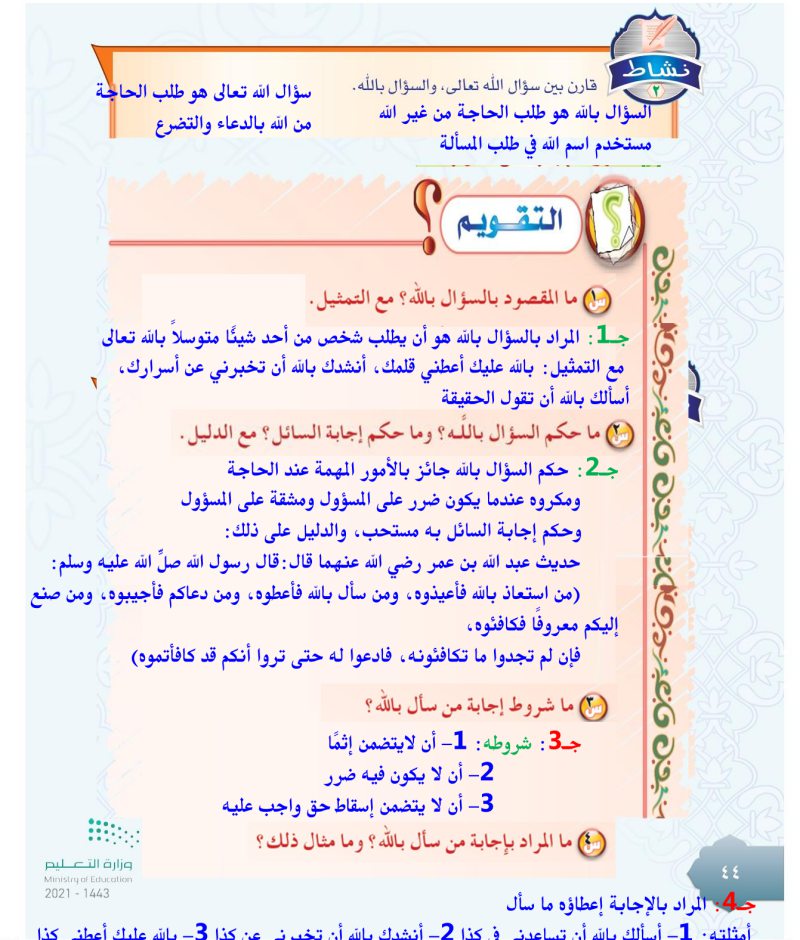 نشاط
٢
قارن بين سؤال الله تعالى، والسؤال بالله.
السؤال بالله هو طلب الحاجة من غير الله
مستخدم اسم الله في طلب المسألة
سؤال الله تعالى هو طلب الحاجة
من الله بالدعاء والتضرع
التقويم
س١ ما المقصود بالسؤال بالله؟ مع التمثيل.
جـ1: المراد بالسؤال بالله هو أن يطلب شخص من أحد شيئًا متوسلاً بالله تعالى
مع التمثيل: بالله عليك أعطني قلمك، أنشدك بالله أن تخبرني عن أسرارك،
أسألك بالله أن تقول الحقيقة
س٢ ما حكم السؤال بالله؟ وما حكم إجابة السائل؟ مع الدليل.
جـ2: حكم السؤال بالله جائز بالأمور المهمة عند الحاجة
ومكروه عندما يكون ضرر على المسؤول ومشقة على المسؤول
وحكم إجابة السائل به مستحب، والدليل على ذلك:
حديث عبد الله بن عمر رضي الله عنهما قال:قال رسول الله صلِّ الله عليه وسلم:
(من استعاذ بالله فأعيذوه، ومن سأل بالله فأعطوه، ومن دعاكم فأجيبوه، ومن صنع
إليكم معروفًا فكافئوه،
فإن لم تجدوا ما تكافئونه، فادعوا له حتى تروا أنكم قد كافأتموه)
س٣ ما شروط إجابة من سأل بالله؟
جـ3: شروطه: 1– أن لايتضمن إثمًا
2– أن لا يكون فيه ضرر
3– أن لا يتضمن إسقاط حق واجب عليه
س٤ ما المراد بإجابة من سأل بالله؟ وما مثال ذلك؟
وزارة التعليم
Ministry of Education
2021 - 1443
٤٤
جـ4: المراد بالإجابة إعطاؤه ما سأل
أمثلته: 1– أسألك بالله أن تساعدني في كذا 2– أنشدك بالله أن تخبرني عن كذا 3– بالله عليك أعطني كذا